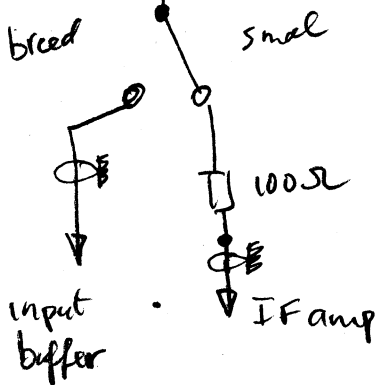 breed
smal
100Ω
input
buffer
IF amp